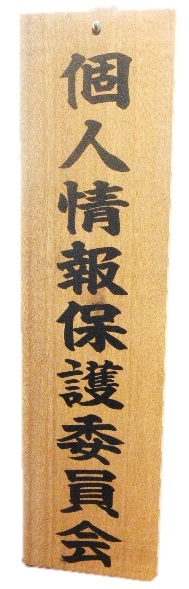 個人情報保護委員会